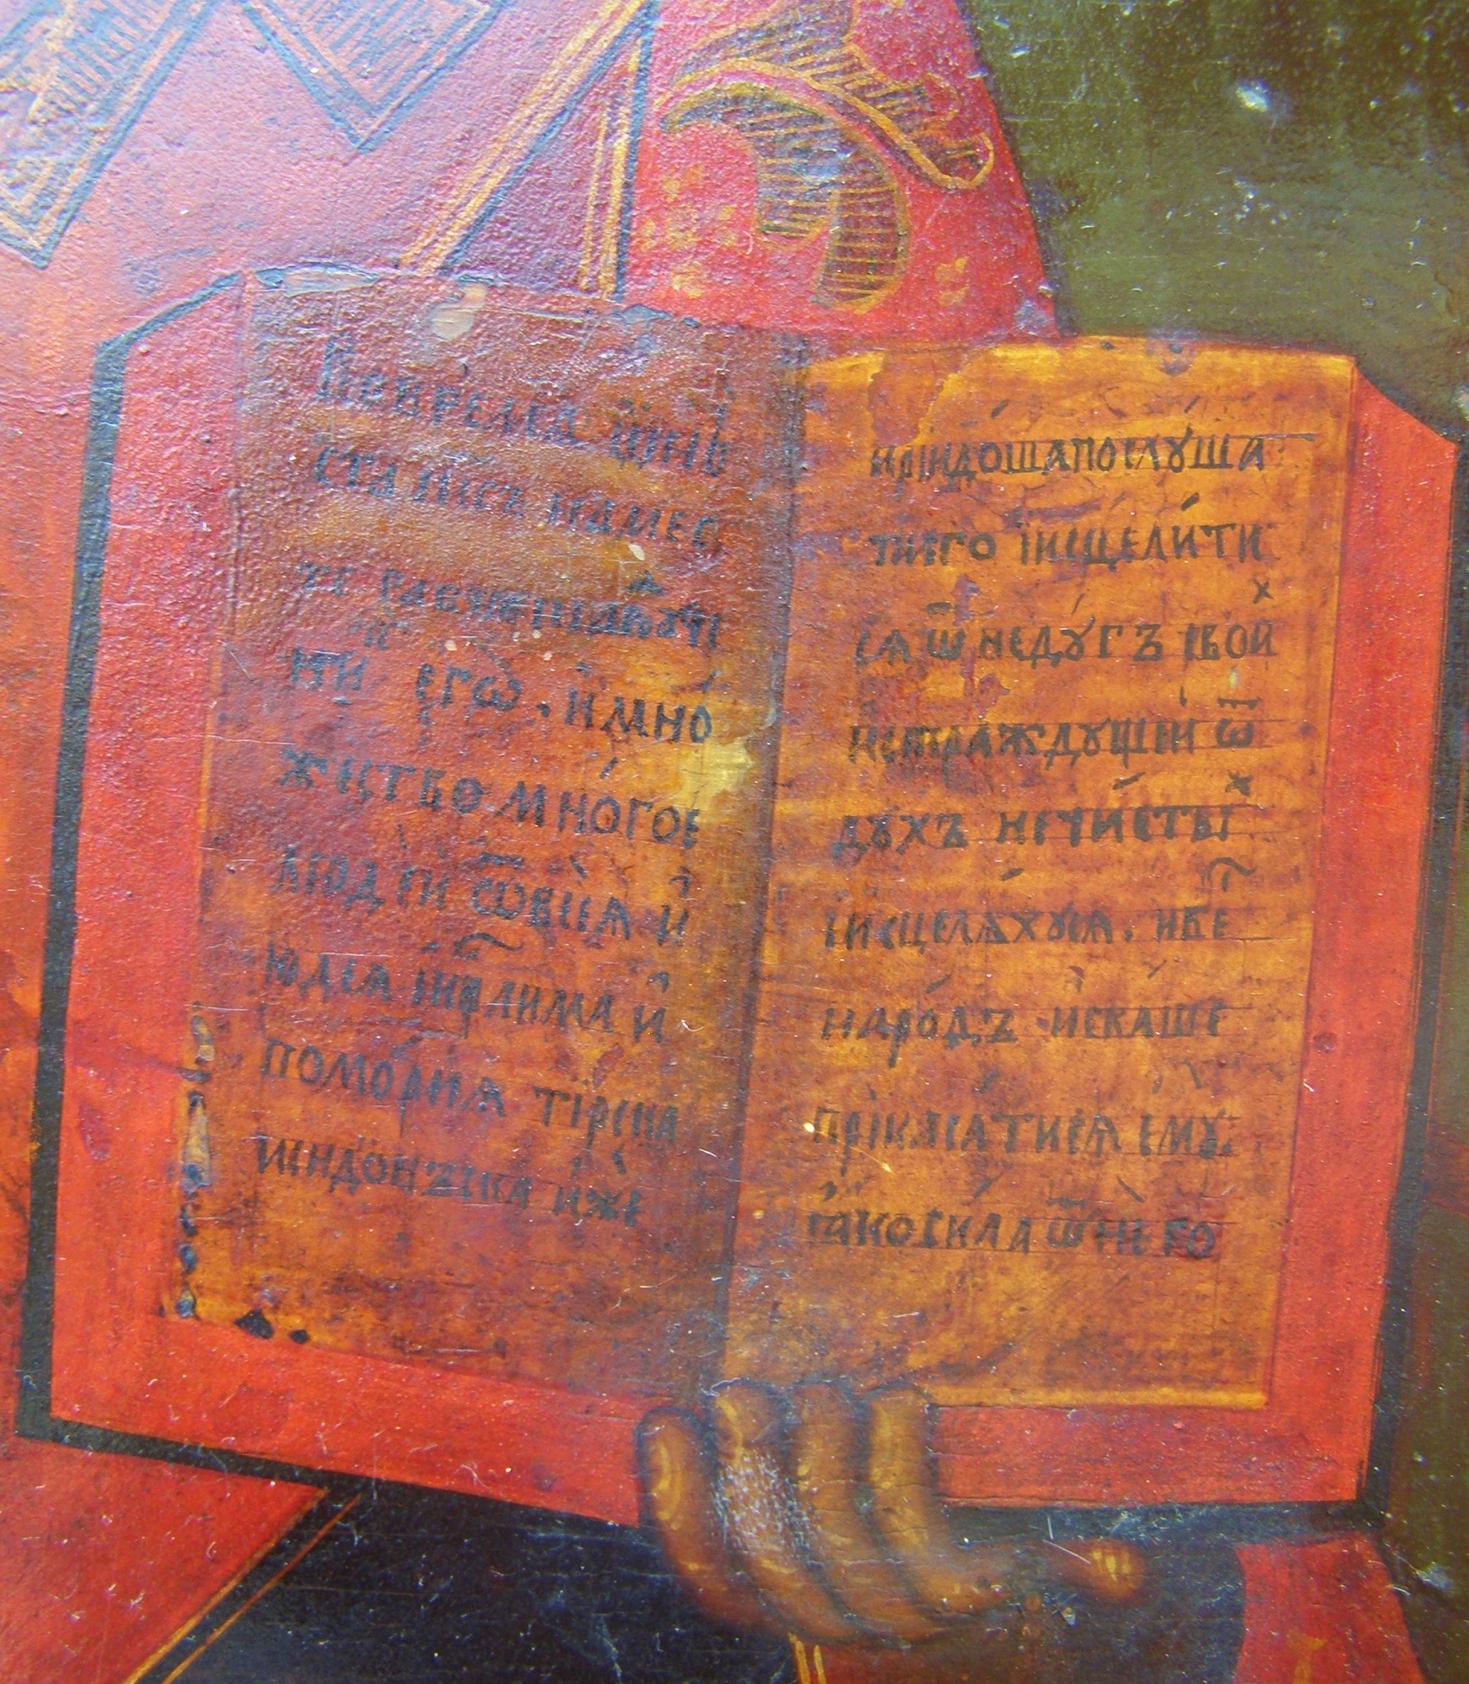 Вовремѧ ѡно
ста іисъ намес
те
ни егѡ. имно
жество многое
людѣи ѿвсеѧ и
юдеѧ іиерлима и
поморїѧ тірска
исидонъска иже
прїидошапослуша
тиего їисцелити
сѧ ѿ недугъ свои
истраждущіи ѿ
духъ нечисты
їисцелѧхусѧ. иве
народъ искаше
прікасатисѧ ему
ꙗкосила ѿнего